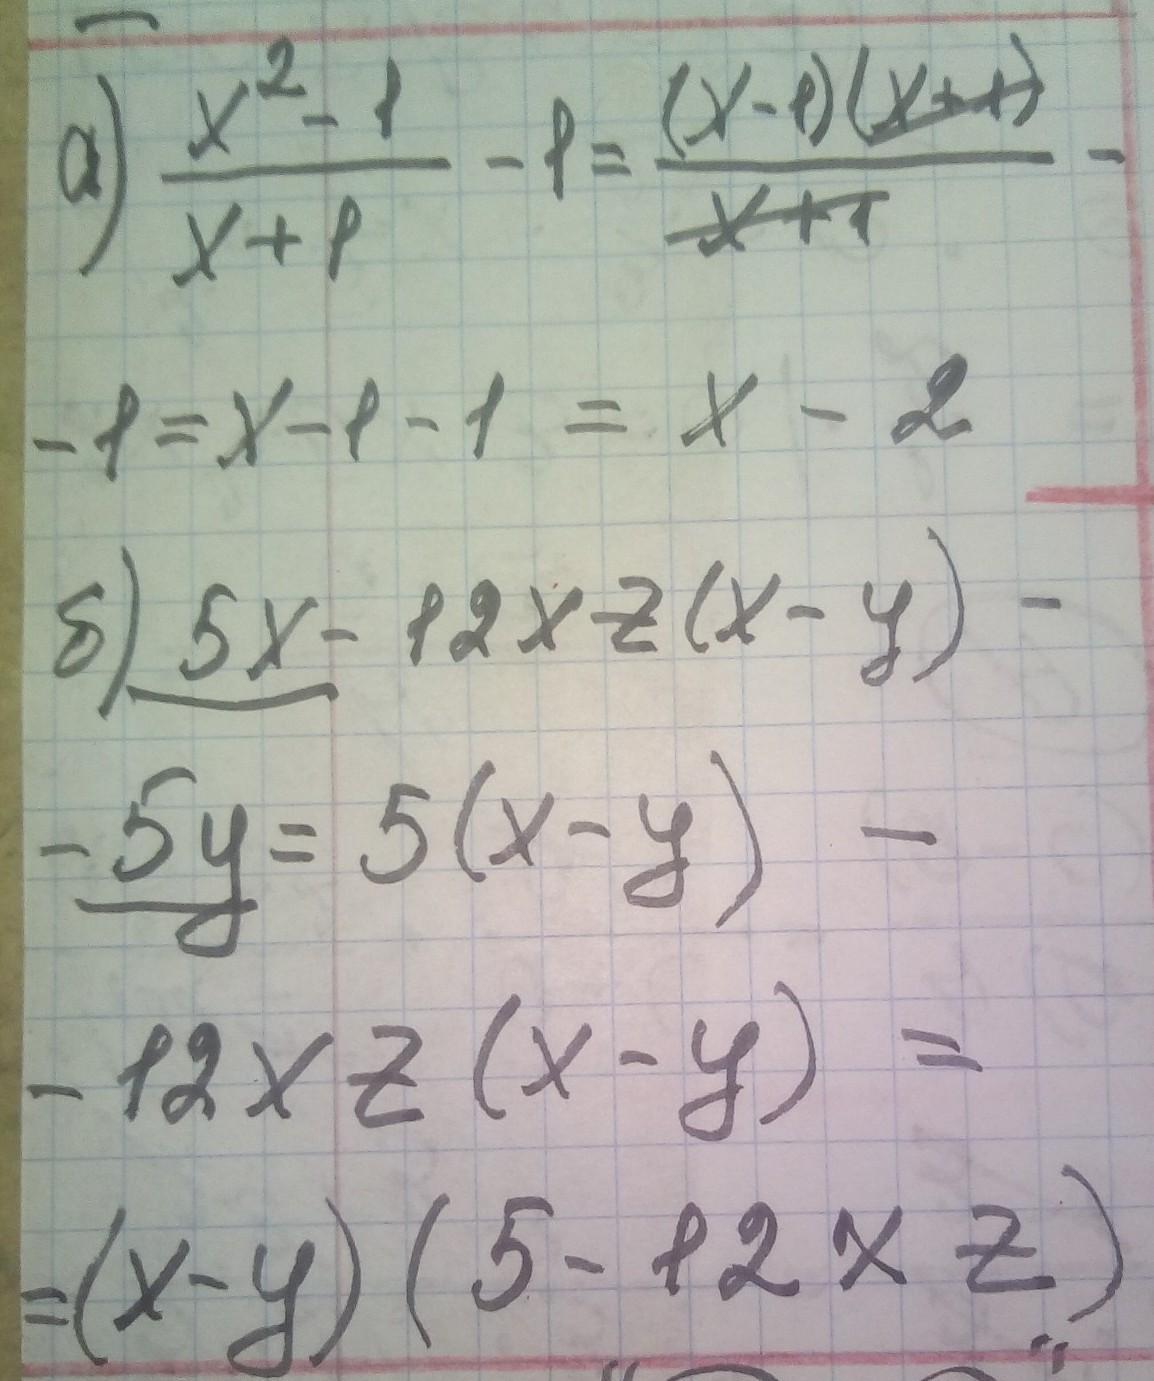 а) (x² - 1)/(x + 1) - 1 = ((x - 1)(x + 1))/(x + 1) -
- 1 = x - 1 - 1 = x - 2
б) 5x - 12xz(x - y) -
- 5y = 5(x - y) -
- 12xz(x - y) =
= (x - y)(5 - 12xz)